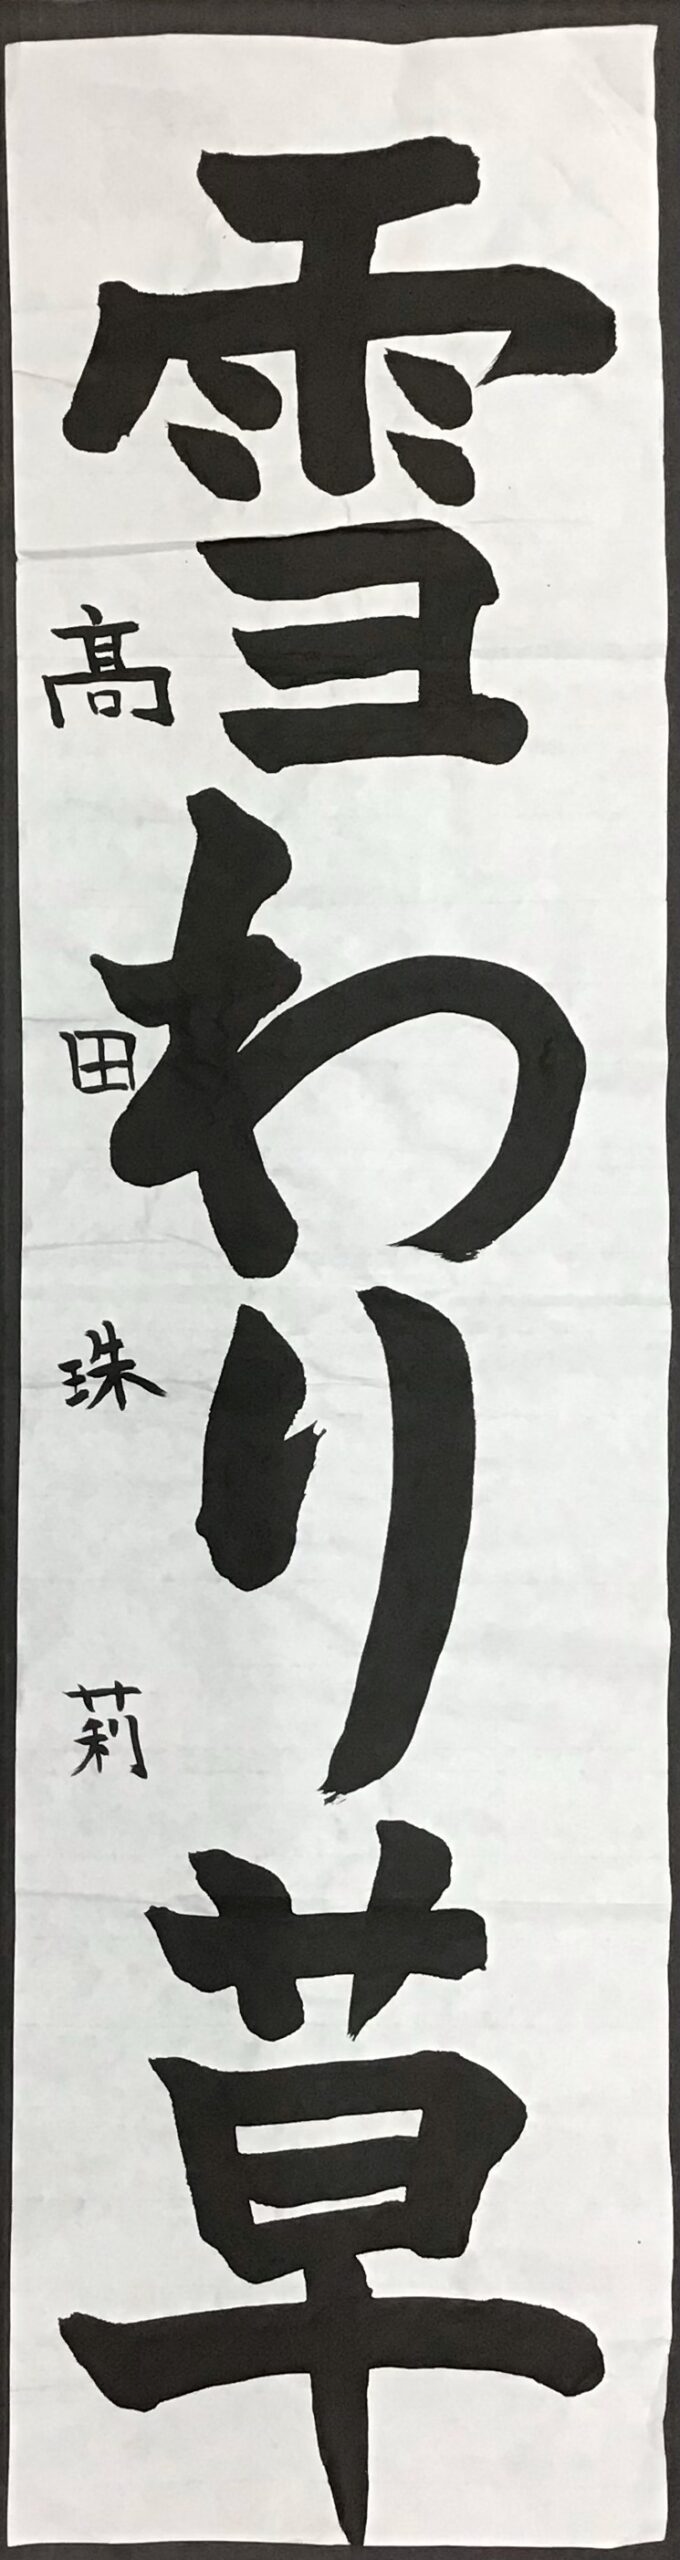 雪わり草
髙田珠莉